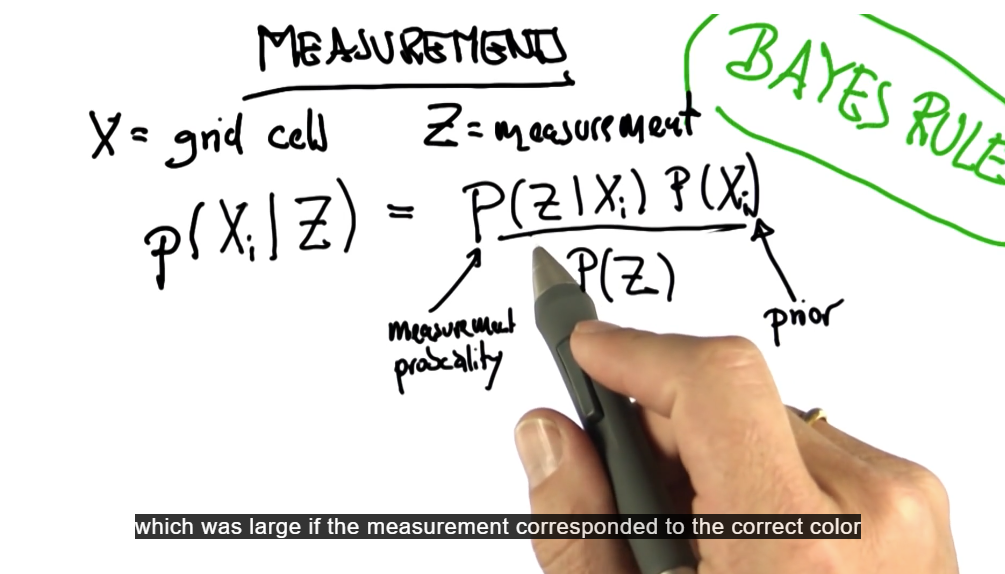 MEASUREMENTS
BAYES RULE
X = grid cell Z = measurement
p(Xi | Z) = P(Z | Xi) P(Xi)
P(Z)
measurement
probability
prior
which was large if the measurement corresponded to the correct color